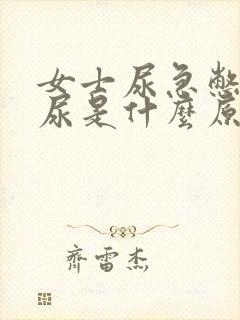 女士尿急憋
尿是什麼原
齊雷杰